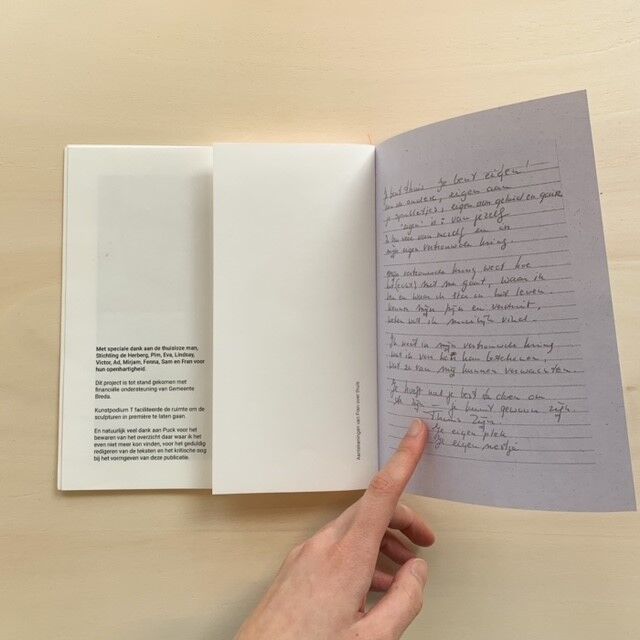 Met speciale dank aan de thuisloze man,
Stichting de Herberg, Pim, Eva, Lindsay,
Victor, Ad, Mirjam, Fenna, Sam en Fran voor
hun openhartigheid.
Dit project is tot stand gekomen met
financiële ondersteuning van Gemeente
Breda.
Kunstpodium T faciliteerde de ruimte om de
sculpturen in première te laten gaan.
En natuurlijk veel dank aan Puck voor het
bewaren van het overzicht daar waar ik het
even niet meer kon vinden, voor het geduldig
redigeren van de teksten en het kritische oog
bij het vormgeven van deze publicatie.
Aantekeningen van Fran over thuis
Je bent thuis je bent eigen!
eigen aan
je spulletjes, eigen aan geluid en geur
"eigen" is van jezelf
Ik ben een van mezelf en in
mijn eigen vertrouwde kring
Mijn vertrouwde kring weet hoe
het met me gaat, waar ik
ben en waar ik sta en hoe leven
kennen mijn pijn en verdriet,
weten wat ik moeilijk vind.
Ik weet in mijn vertrouwde kring
wat ik van hen
wat ze van mij kunnen verwachten
Je hoeft niet je best te doen om
je kunt gewoon zijn
Thuis zijn
je eigen plek
je eigen nestje